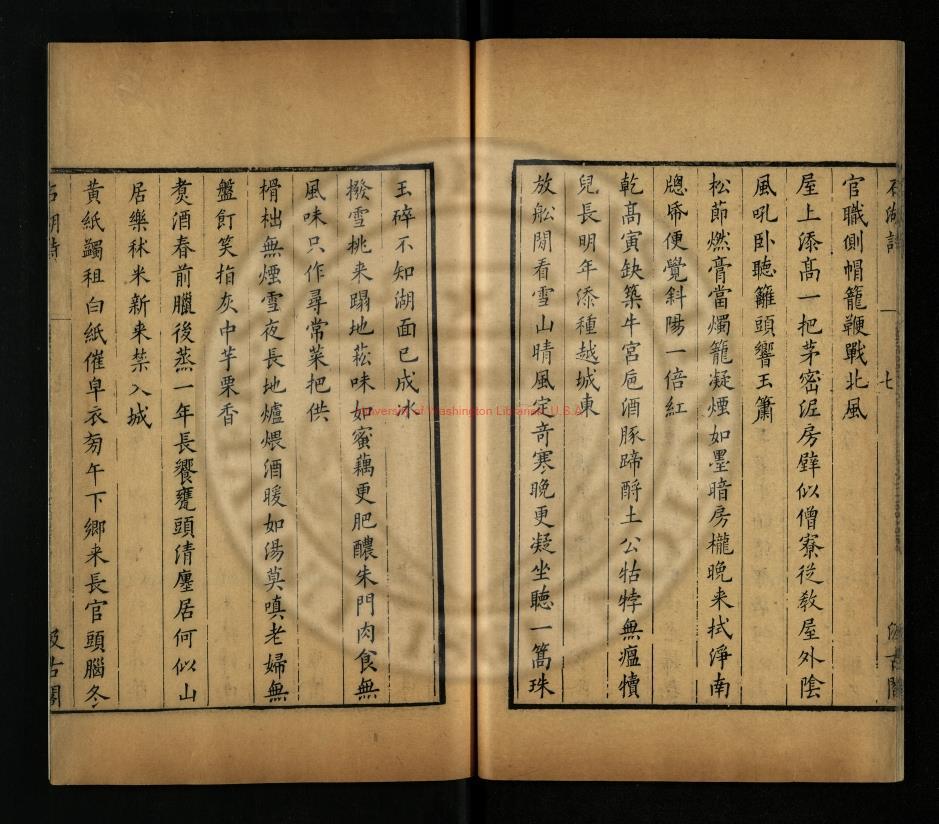 石湖詩
一
七
汲古閣
官職側帽籠鞭戰北風
屋上添髙一把茅密泥房壁似僧寮従敎屋外陰
風吼卧聴籬頭響玉簫
松節燃膏當燭籠凝煙如墨暗房櫳晩来拭淨南
牕帋便覺斜陽一倍紅
乾髙寅缺築牛宫巵酒豚蹄酹土公牯牸無瘟犢
兒長明年添種越城東
放船閒看雪山晴風定竒寒晩更凝坐聴一篙珠
玉碎不知湖面已成冰
撥雪挑来蹋地菘味如蜜藕更肥醲朱門肉食無
風味只作尋常菜把供
榾柮無煙雪夜長地爐煨酒暖如湯莫嗔老婦無
盤飣笑指灰中芋栗香
煑酒春前臘後蒸一年長饗甕頭清廛居何似山
居樂秫米新来禁入城
黄紙蠲租白紙催皁衣旁午下鄉来長官頭腦冬
石湖詩
汲古閣
University of Washington Libraries, U.S.A.